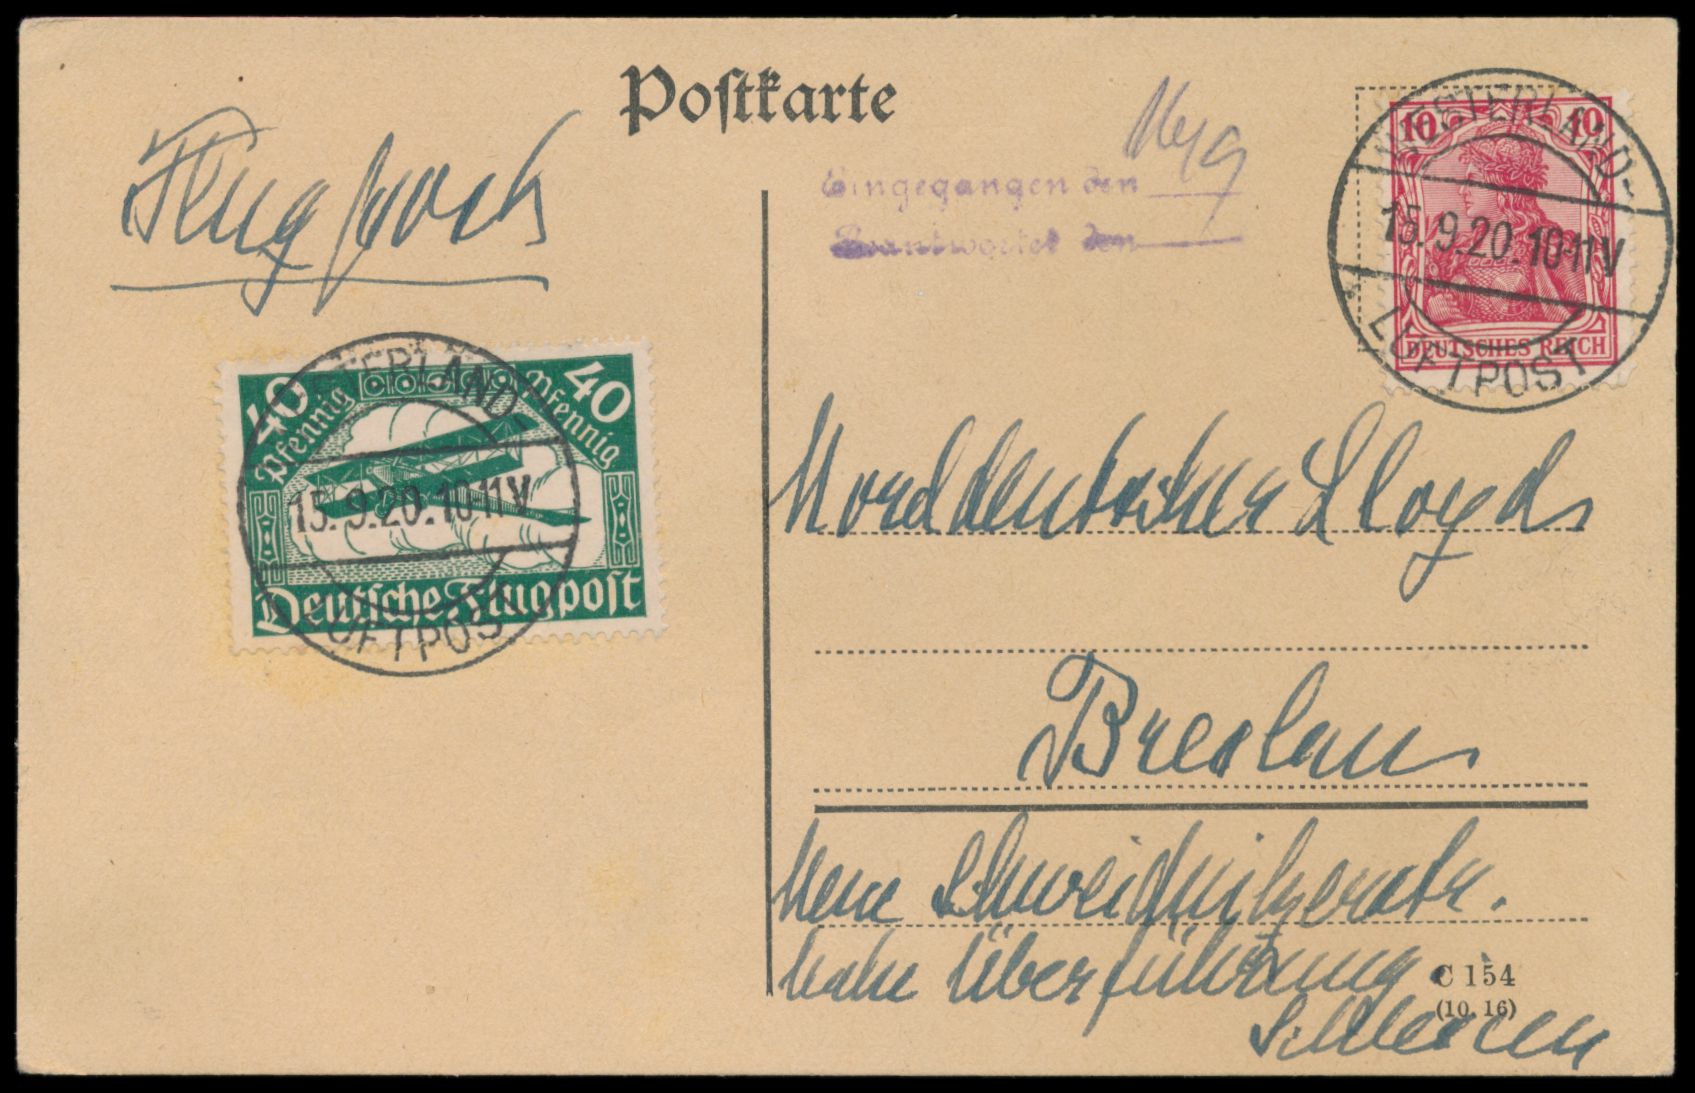 Postkarte
Flugpost
Eingegangen den
Beantwortet den
10 10
DEUTSCHES REICH
WESTERLAND
15.9.20.10-11V
LUFTPOST
40 Pfennig
40 Pfennig
Deutsche Flugpost
WESTERLAND
15.9.20.10-11V
LUFTPOST
Norddeutscher Lloyd
Breslau
Neue Schweidnitzerstr.
Überführung
Schlesien
C 154
(10. 16)